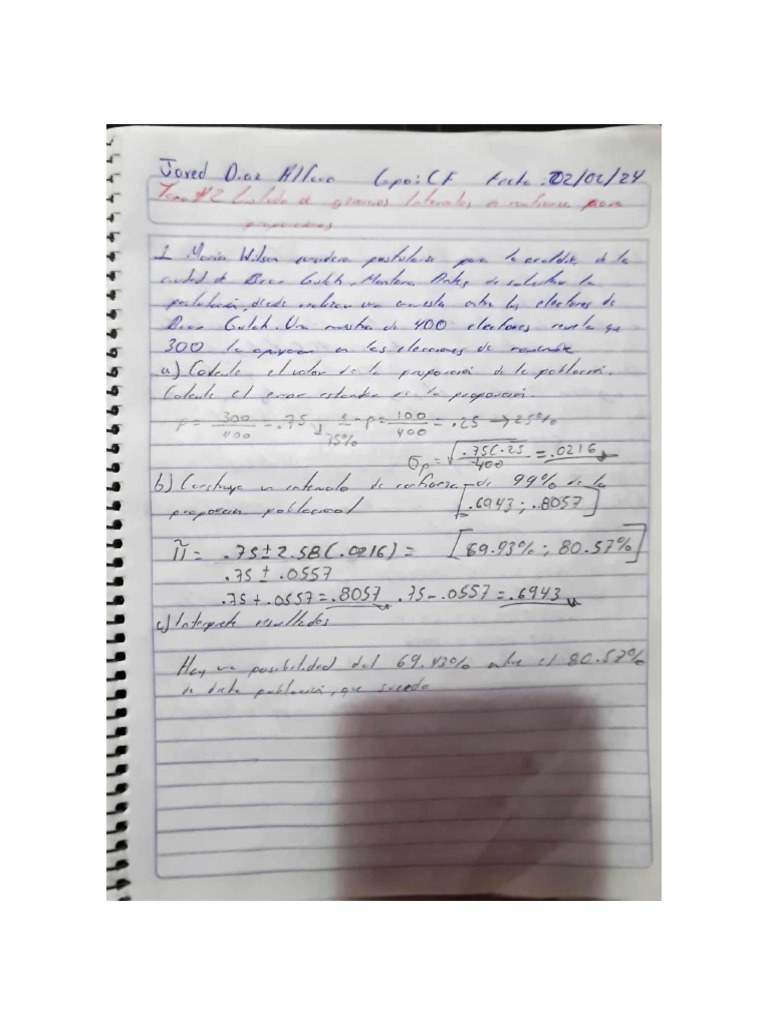 Jared Diaz Alfaro Gpo: CF Fecha: 02/02/24
Tema #2 Listado de Intervalos de confianza para
proporciones
1 María Wilson considera postularse para la alcaldía de la
ciudad de Bear Gulch, Montana. Antes de solicitar la
postulación, decide realizar una encuesta entre los electores de
Bear Gulch. Una muestra de 400 electores revela que
300 la apoyarían en las elecciones de noviembre
a) Calcule el valor de la proporción de la población.
Calcule el error estándar de la proporción.
P = 300/400 = .75 ↓ 75% -P = 100/400 = .25 → 25%
σp = √.75(.25/400 = .0216
b) Construya un intervalo de confianza de 99% de la
proporcion poblacional [.6943 ; .8057]
π = .75 ± 2.58 (.0216) = [69.93% ; 80.57%]
.75 ± .0557
.75 + .0557 = .8057 .75 - .0557 = .6943
c) Interprete resultados
Hay una posibilidad del 69.43% entre el 80.57%
de dicha población, que suceda